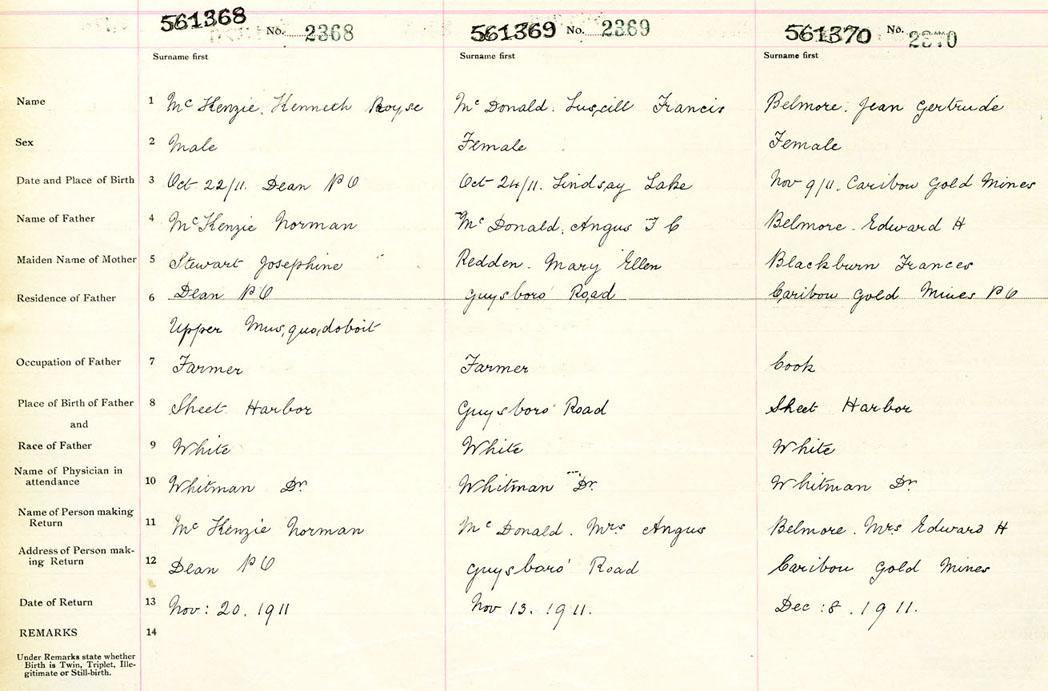 561368 No. 2368 561369 No. 2369 561370 No. 2370
Surname first Surname first Surname first
Name 1 McKenzie. Kenneth Royse McDonald. Luscill Francis Belmore. Jean Gertrude
Sex 2 Male Female Female
Date and Place of Birth 3 Oct 22/11. Dean P O Oct 24/11. Lindsay Lake Nov 9/11. Caribou Gold Mines
Name of Father 4 McKenzie Norman McDonald. Angus F C Belmore. Edward H
Maiden Name of Mother 5 Stewart Josephine Redden. Mary Ellen Blackburn Frances
Residence of Father 6 Dean P O Guysboro' Road Caribou Gold Mines P O
Upper Musquodoboit
Occupation of Father 7 Farmer Farmer Cook
Place of Birth of Father 8 Sheet Harbor Guysboro' Road Sheet Harbor
and
Race of Father 9 White White White
Name of Physician in
attendance 10 Whitman Dr. Whitman Dr. Whitman Dr.
Name of Person making
Return 11 McKenzie Norman McDonald. Mrs Angus Belmore. Mrs Edward H
Address of Person mak-
ing Return 12 Dean P O Guysboro' Road Caribou Gold Mines
Date of Return 13 Nov: 20. 1911 Nov 13. 1911. Dec: 8. 1911.
REMARKS 14
Under Remarks state whether
Birth is Twin, Triplet, Ille-
gitimate or Still-birth.